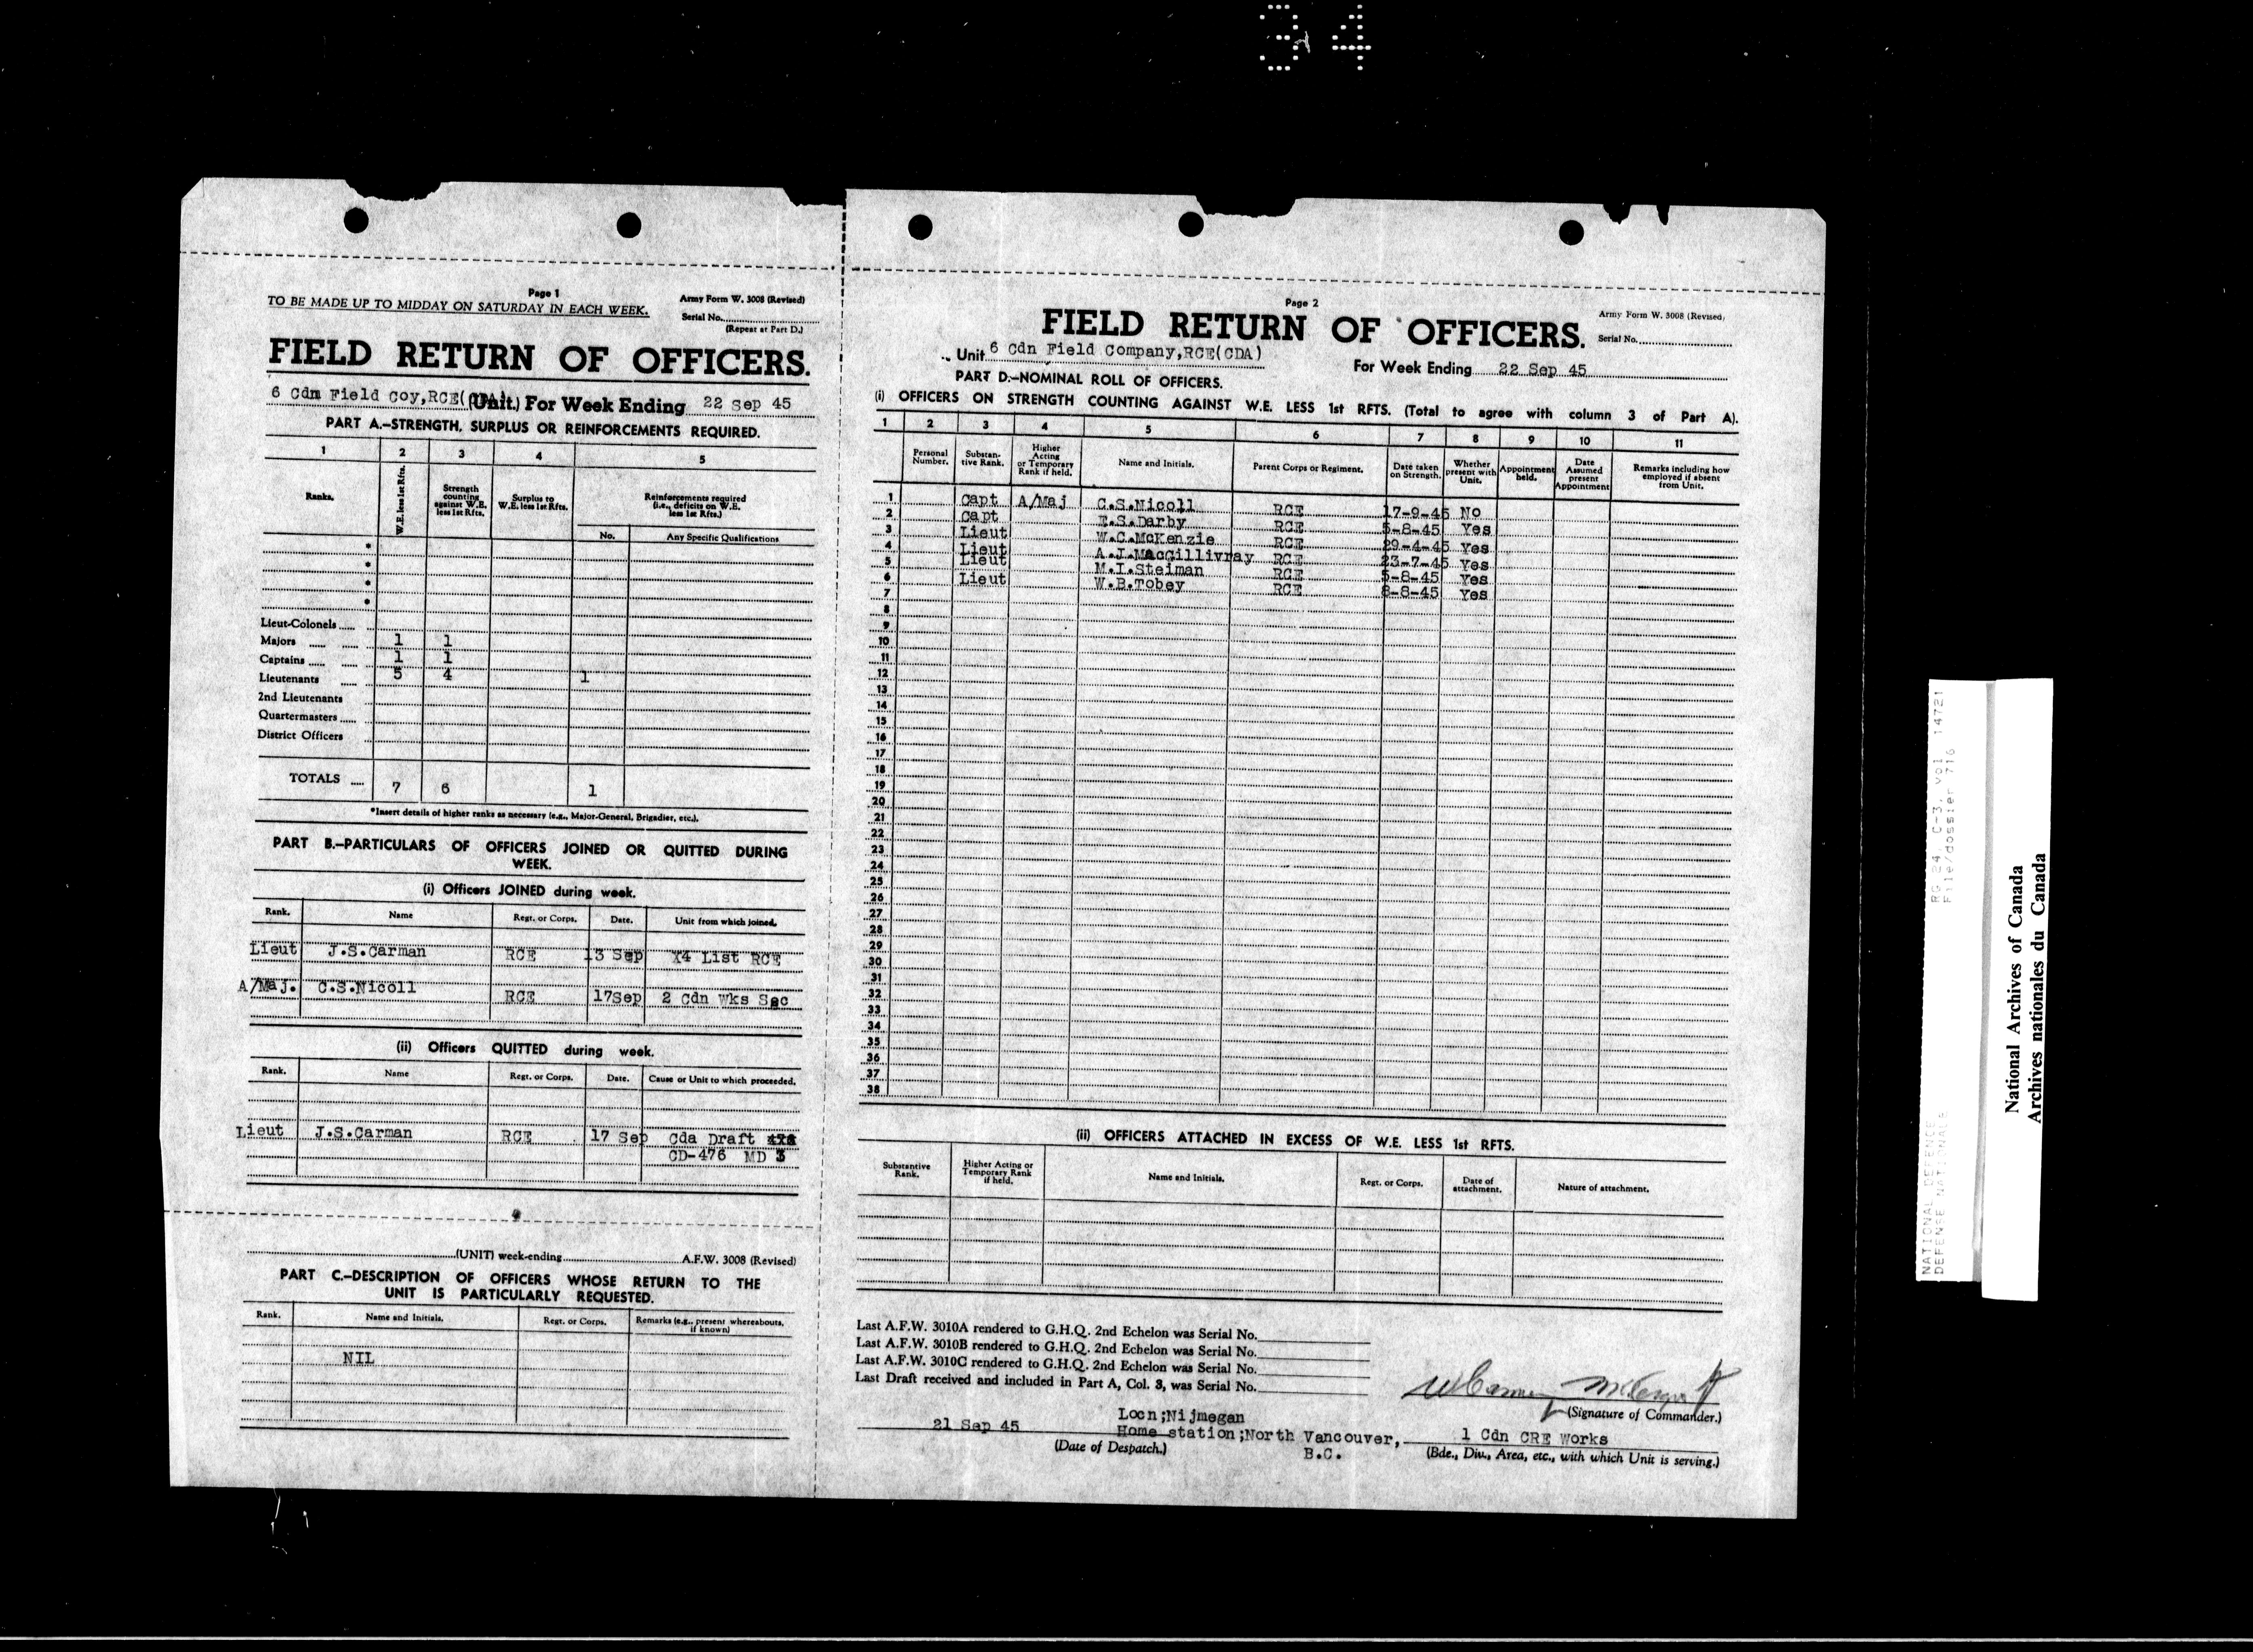 34
Page 1
TO BE MADE UP TO MIDDAY ON SATURDAY IN EACH WEEK.
Army Form W. 3008 (Revised)
Serial No.
(Repeat at Part D.)
FIELD RETURN OF OFFICERS.
6 Cdn Field Coy,RCE( (Unit.) For Week Ending 22 Sep 45
PART A.—STRENGTH, SURPLUS OR REINFORCEMENTS REQUIRED.
1 2 3 4 5
Ranks. W.E. less 1st Rfts. Strength counting against W.E. less 1st Rfts. Surplus to W.E. less 1st Rfts. Reinforcements required (i.e., deficits on W.E. less 1st Rfts.)
No. Any Specific Qualifications
*
*
*
*
Lieut-Colonels
Majors 1 1
Captains 1 1
Lieutenants 5 4 1
2nd Lieutenants
Quartermasters
District Officers
TOTALS 7 6 1
*Insert details of higher ranks as necessary (e.g., Major-General, Brigadier, etc.).
PART B.—PARTICULARS OF OFFICERS JOINED OR QUITTED DURING
WEEK.
(i) Officers JOINED during week.
Rank. Name Regt. or Corps. Date. Unit from which joined.
Lieut J.S.Carman RCE 13 Sep X4 List RCE
A/Maj. C.S.Nicoll RCE 17Sep 2 Cdn Wks Sec
(ii) Officers QUITTED during week.
Rank. Name Regt. or Corps. Date. Cause or Unit to which proceeded.
Lieut J.S.Carman RCE 17 Sep Cda Draft
CD-476 MD 3
(UNIT) week-ending A.F.W. 3008 (Revised)
PART C.—DESCRIPTION OF OFFICERS WHOSE RETURN TO THE
UNIT IS PARTICULARLY REQUESTED.
Rank. Name and Initials. Regt. or Corps. Remarks (e.g., present whereabouts, if known)
NIL
Page 2
FIELD RETURN OF OFFICERS.
Army Form W. 3008 (Revised)
Serial No.
Unit 6 Cdn Field Company,RCE(CDA)
For Week Ending 22 Sep 45
PART D.—NOMINAL ROLL OF OFFICERS.
(i) OFFICERS ON STRENGTH COUNTING AGAINST W.E. LESS 1st RFTS. (Total to agree with column 3 of Part A).
1 2 3 4 5 6 7 8 9 10 11
Personal Number. Substantive Rank. Higher Acting or Temporary Rank if held. Name and Initials. Parent Corps or Regiment. Date taken on Strength. Whether present with Unit. Appointment held. Date Assumed present Appointment Remarks including how employed if absent from Unit.
1 Capt A/Maj C.S.Nicoll RCE 17-9-45 No
2 Capt E.S.Darby RCE 5-8-45 Yes
3 Lieut W.C.McKenzie RCE 29-4-45 Yes
4 Lieut A.J.MacGillivray RCE 23-7-45 Yes
5 Lieut M.I.Steiman RCE 5-8-45 Yes
6 Lieut W.B.Tobey RCE 8-8-45 Yes
7
8
9
10
11
12
13
14
15
16
17
18
19
20
21
22
23
24
25
26
27
28
29
30
31
32
33
34
35
36
37
38
(ii) OFFICERS ATTACHED IN EXCESS OF W.E. LESS 1st RFTS.
Substantive Rank. Higher Acting or Temporary Rank if held. Name and Initials. Regt. or Corps. Date of attachment. Nature of attachment.
Last A.F.W. 3010A rendered to G.H.Q. 2nd Echelon was Serial No.
Last A.F.W. 3010B rendered to G.H.Q. 2nd Echelon was Serial No.
Last A.F.W. 3010C rendered to G.H.Q. 2nd Echelon was Serial No.
Last Draft received and included in Part A, Col. 3, was Serial No.
(Signature of Commander.)
Locn;Nijmegan
21 Sep 45 Home station;North Vancouver, 1 Cdn CRE Works
(Date of Despatch.) B.C. (Bde., Div., Area, etc., with which Unit is serving.)
NATIONAL DEFENCE RG 24, C-3, vol. 14721
DEFENSE NATIONALE File/dossier 716
National Archives of Canada
Archives nationales du Canada